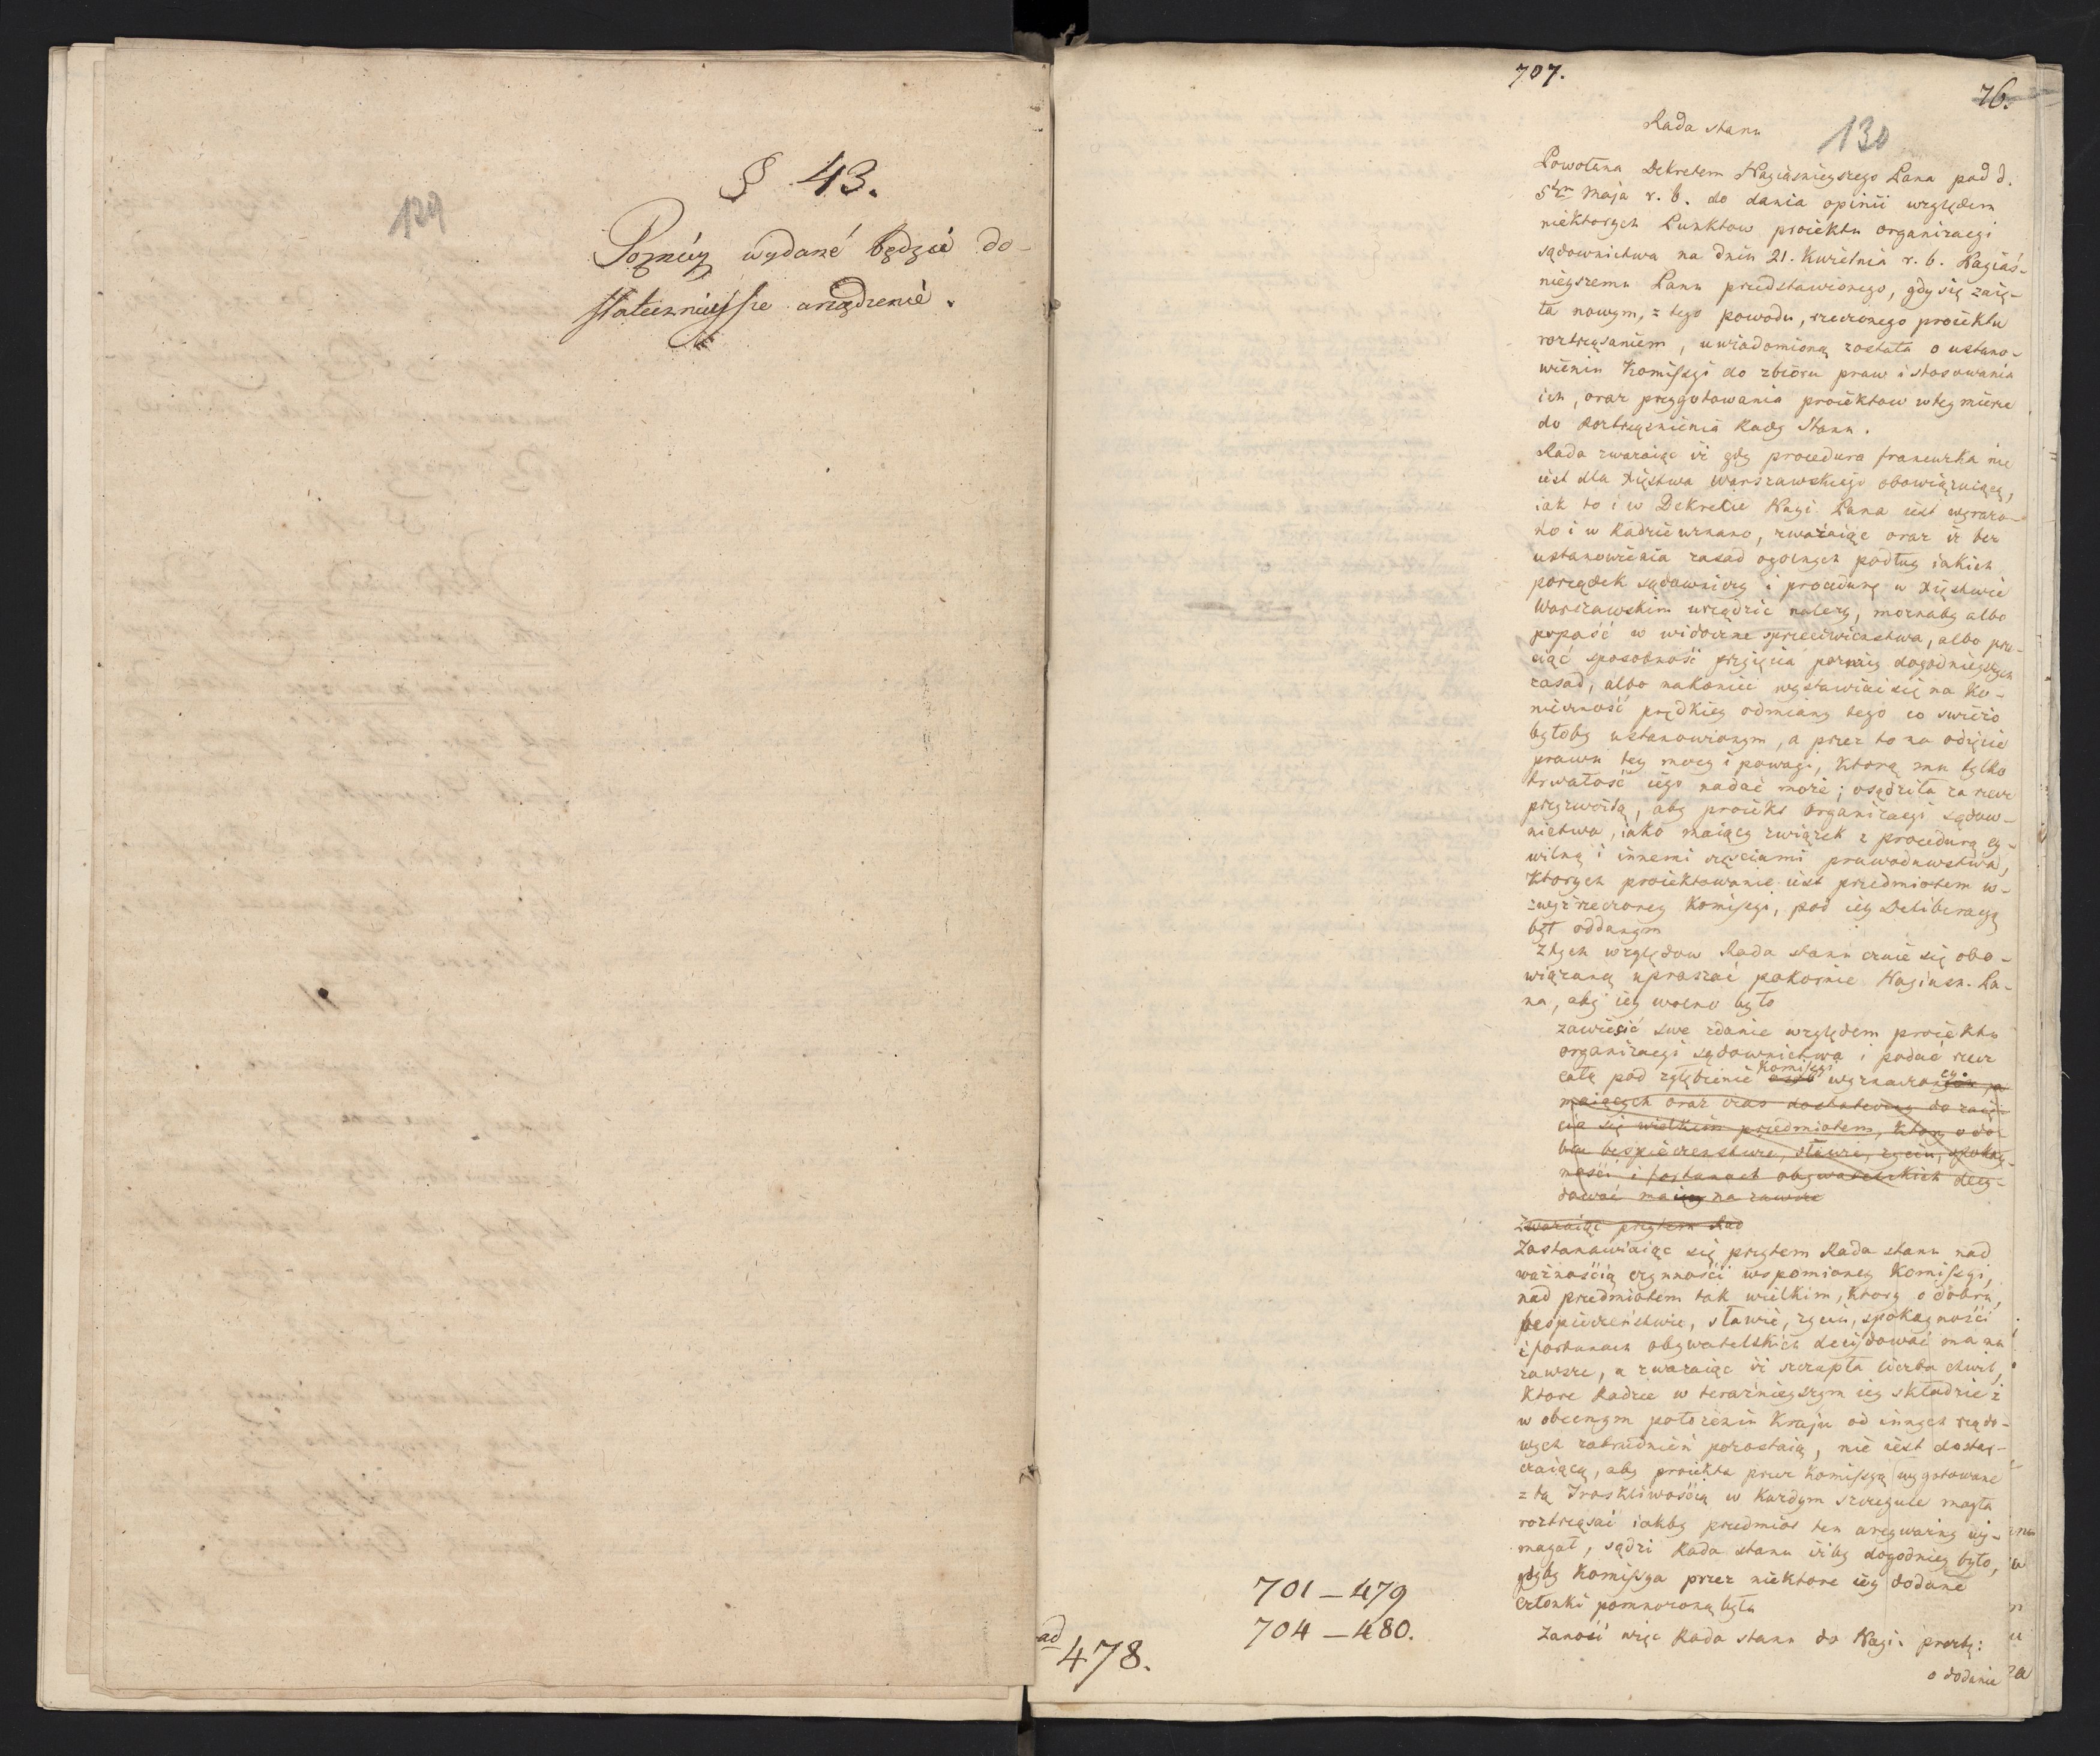 129
§ 43.
Pozniéy wydané będzié do-
stateczniéysze urządzenié.
707.
76.
130
Rada stanu
Powołana Dekretem Nayiaśnieyszego Pana pod d.
5tym Maja r. b. do dania opinii względem
niektorych Punktow proiektu organizacyi
sądownictwa na dniu 21. Kwietnia r. b. Nayiaś-
nieyszemu Panu przedstawionego, gdy się zaię-
ła nowym, z tego powodu, rzeczonego proiektu
roztrząsaniem, uwiadomioną została o ustano-
wieniu Komissyi do zbioru praw i stosowania
ich, oraz przygotowania proiektow w tey mierze
do Roztrząśnienia Rady Stanu.
Rada zważaiąc iż gdy procedura francuzka nie
iest dla Xięstwa Warszawskiego obowiązuiącą,
iak to i w Dekrecie Nayi. Pana iest wyrażo-
no i w Radzie uznano, zważaiąc oraz iż bez
ustanowienia zasad ogolnych podług iakich
porządek sądowniczy i procedurę w Xięstwie
Warszawskim urządzić należy, możnaby albo
popaść w widoczne sprzeciwieństwa, albo prze-
ciąć sposobność przyięcia pozniey dogodnieyszych
zasad, albo nakoniec wystawiać się na Ko-
nieczność prędkiey odmiany tego co swieżo
byłoby ustanowionym, a przez to na odięcie
prawu tey mocy i powagi, Ktorą mu tylko
trwałość iego nadać może; osądziła za rzecz
przyzwoitą, aby proiekt Organizacyi sądow-
nictwa, iako maiący związek z procedurą cy-
wilną i innemi częsciami prawodawstwa,
Ktorych proiektowanie iest przedmiotem w-
zwyż rzeczoney Komissyi, pod iey Deliberacyą
był oddanym
Z tych względow Rada stanu czuie się obo-
wiązaną upraszać pokornie Nayiasn. Pa-
na, aby iey wolno było
zawiesić swe zdanie względem proiektu
organizacyi sądownictwa i podać rzecz
całą pod zgłębienie Komissyi wyznaczoney.
maiących oraz czas dostateczny do zaię-
cia się wielkim przedmiotem, Ktory o do-
bru bespieczenstwie, sławie, życiu, spokoy-
ności i fortunach obywatelskich decy-
dować maią na zawsze
zważaiąc przytem Rad
Zastanawiaiąc się przytem Rada stanu nad
ważnością czynności wspomioney Komissyi,
nad przedmiotem tak wielkim, Ktory o dobru,
bespieczeństwie, sławie, życiu, spokoyności
i fortunach obywatelskich decydować ma na
zawsze, a zważaiąc iż szczupła liczba chwil,
Ktore Radzie w teraźnieyszym iey składzie i
w obecnym położeniu Kraju od innych rządo-
wych zatrudnień pozostaią, nie iest dostar-
czaiącą, aby proiekta przez Komissyą wygotowane
z tą Troskliwością w Każdym szczegule mogła
roztrząsać iakby przedmiot ten arcyważny wy-
magał, sądzi Rada stanu iżby dogodniey było,
gdyby Komissya przez niektore iey dodane
Członki pomnożoną była
Zanosi więc Rada stanu do Nayi. prozbę:
o dodanie
701 – 479
704 – 480.
ad
478.